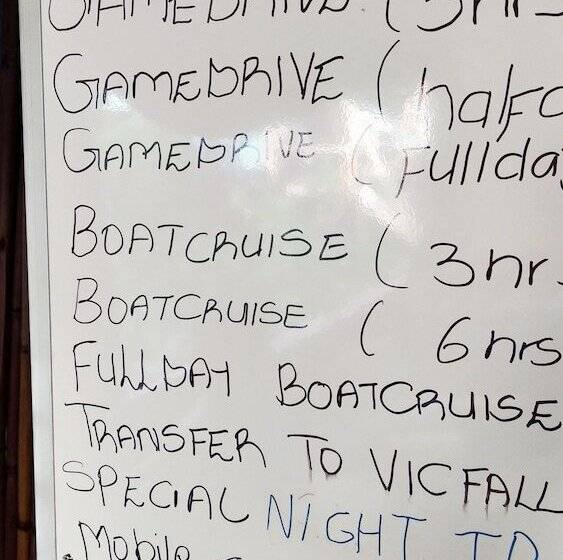 GAMEDRIVE (3hrs
GAMEDRIVE (halfd
GAMEDRIVE (Fullda
BOATCRUISE (3hr
BOATCRUISE ( 6hrs
FULLDAY BOATCRUISE
TRANSFER TO VICFALL
SPECIAL NIGHT TO
Mobile